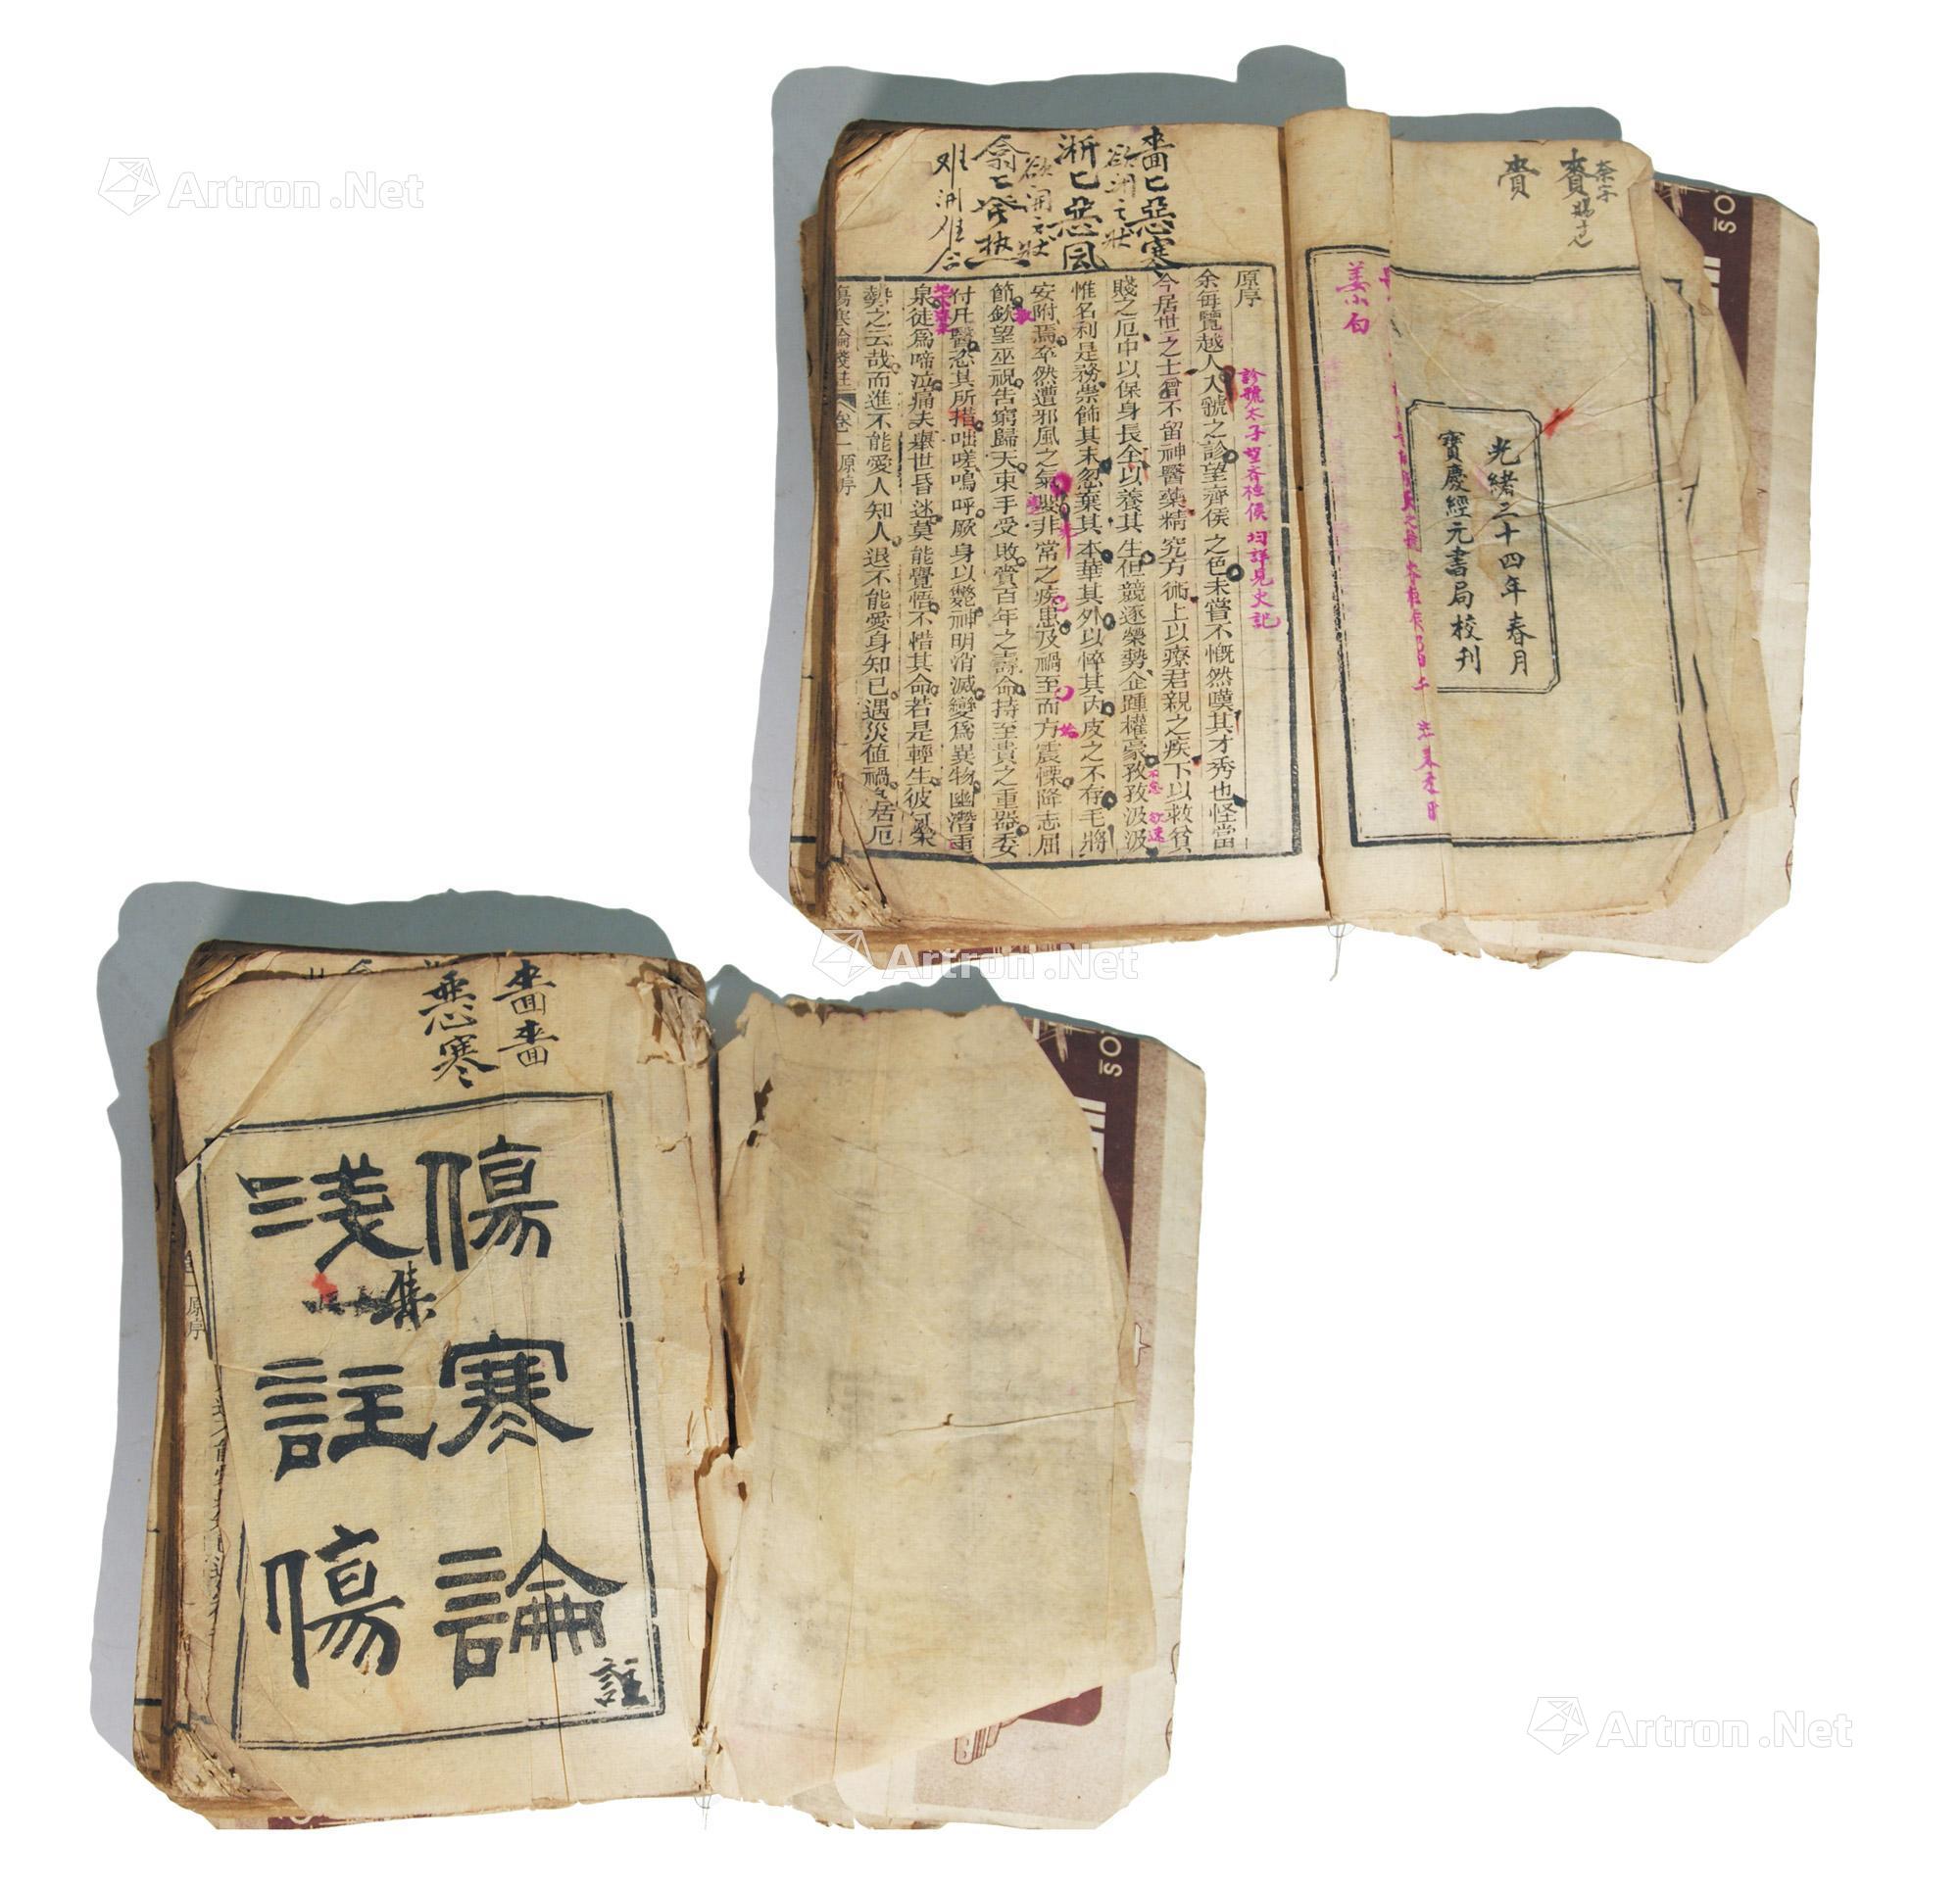 Artron.Net
嗇匕惡寒
欲閉之狀
淅匕惡風
欲開之狀
翕匕發熱
难開难合
原序
余每覽越人入虢之診望齊侯之色未嘗不慨然嘆其才秀也怪當
今居世之士曾不留神醫藥精究方術上以療君親之疾下以救貧
賤之厄中以保身長全以養其生但競逐榮勢企踵權豪孜孜汲汲
惟名利是務崇飾其末忽棄其本華其外以悴其內皮之不存毛將
安附焉卒然遭邪風之氣嬰非常之疾患及禍至而方震慄降志屈
節欽望巫祝告窮歸天束手受敗賫百年之壽命持至貴之重器委
付凡醫恣其所措咄嗟嗚呼厥身以斃神明消滅變為異物幽潛重
泉徒為啼泣痛夫舉世昏迷莫能覺悟不惜其命若是輕生彼何榮
勢之云哉而進不能愛人知人退不能愛身知已遇災值禍身居厄
傷寒論淺註 卷一 原序
診虢太子望齊桓侯均詳見史記
姜小白
賫
賷
光緒二十四年春月
寶慶經元書局校刊
Artron.Net
嗇嗇
惡寒
傷寒論
淺註傷
集
註
原序
Artron.Net